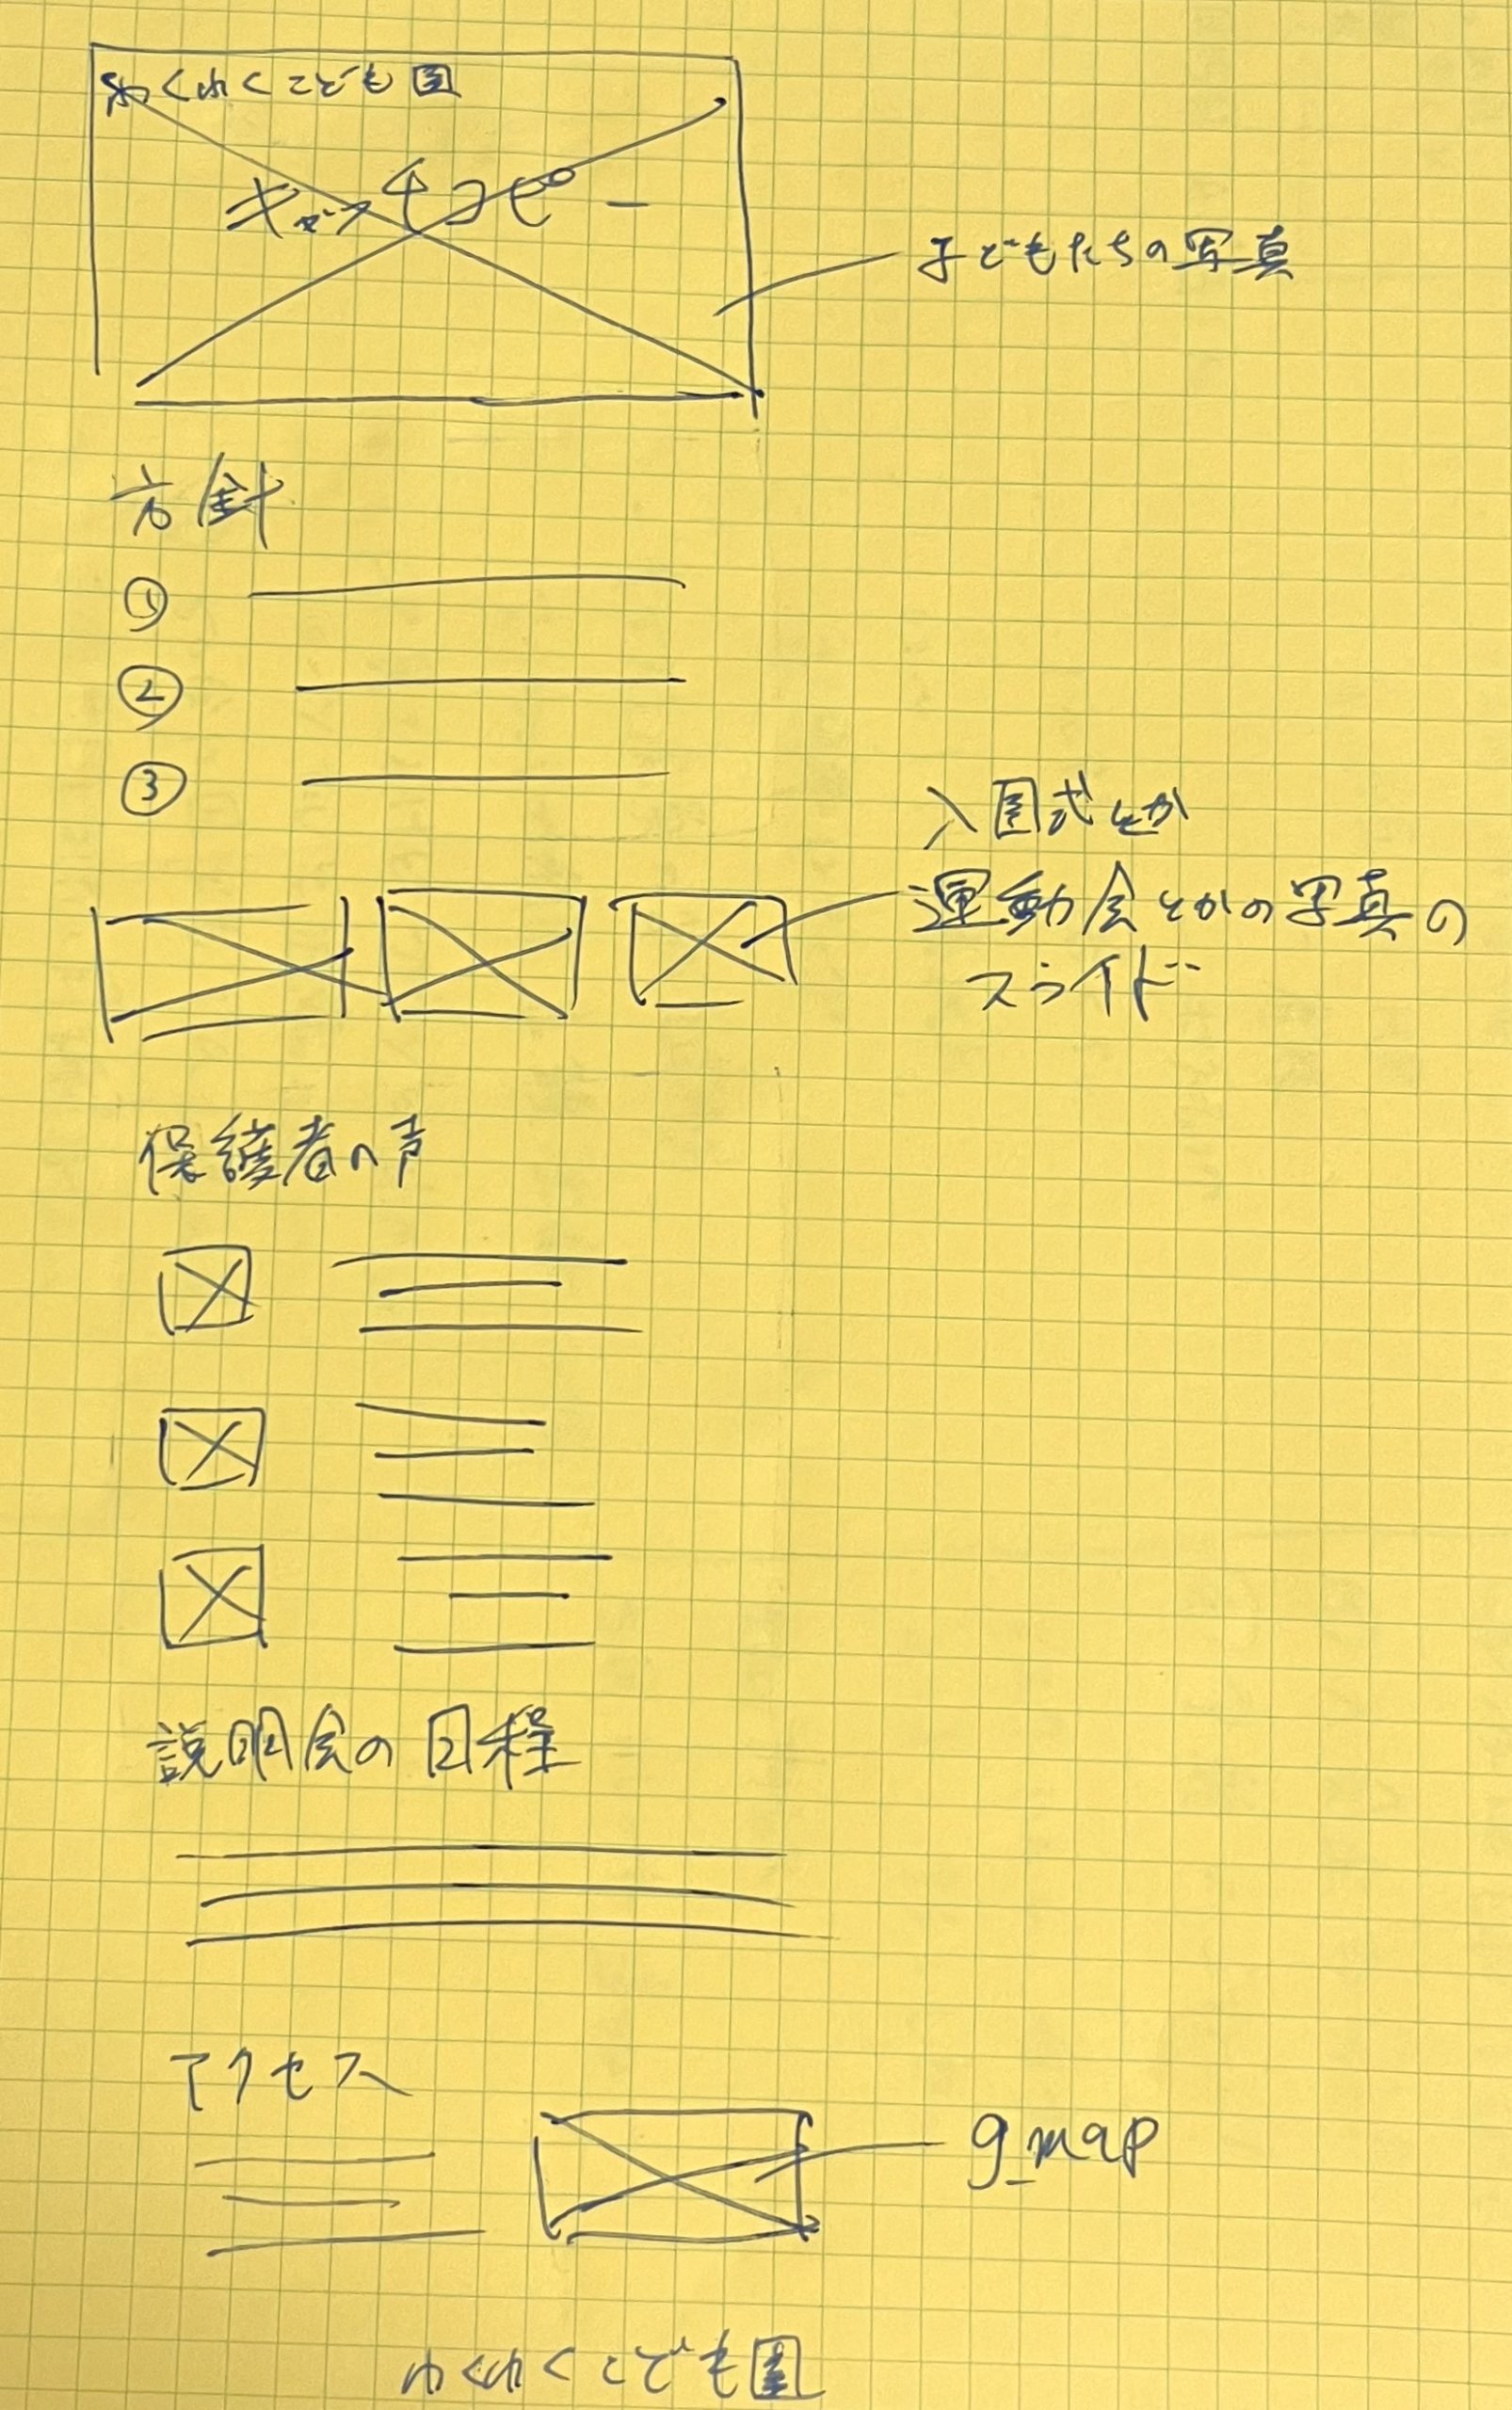 わくわくこども園
キャッチコピー
子どもたちの写真
方針
①
②
③
入園式とか
運動会とかの写真の
スライド
保護者の声
説明会の日程
アクセス
g_map
わくわくこども園